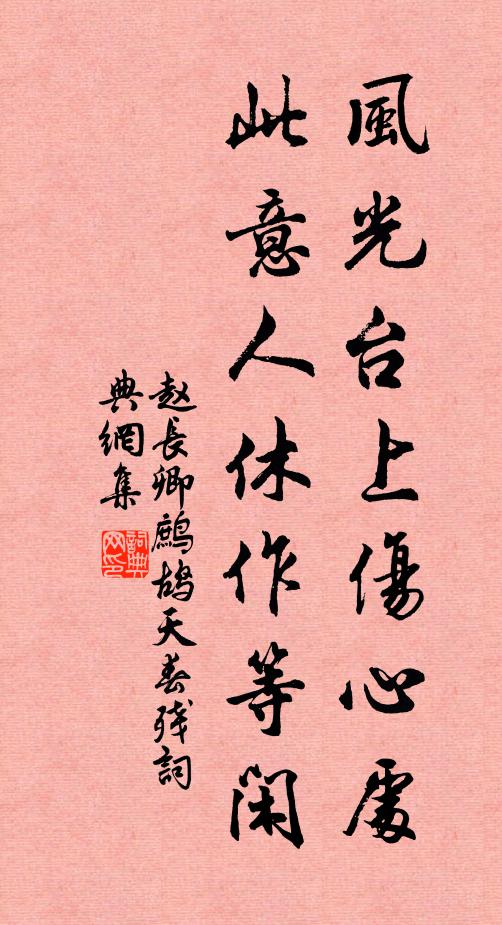 風光台上傷心處
此意人休作等閑
赵長卿鷓鴣天春残詞
典網集
詞典
网印